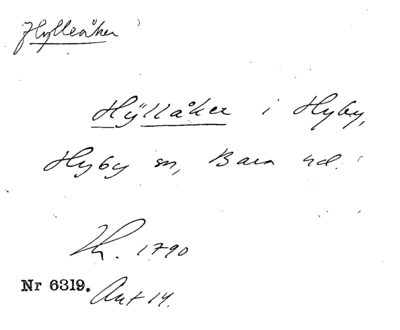 Hylleåker
Hÿllåker i Hyby,
Hyby sn, Bara hd.
Kh. 1790
Nr 6319.
Akt 14.